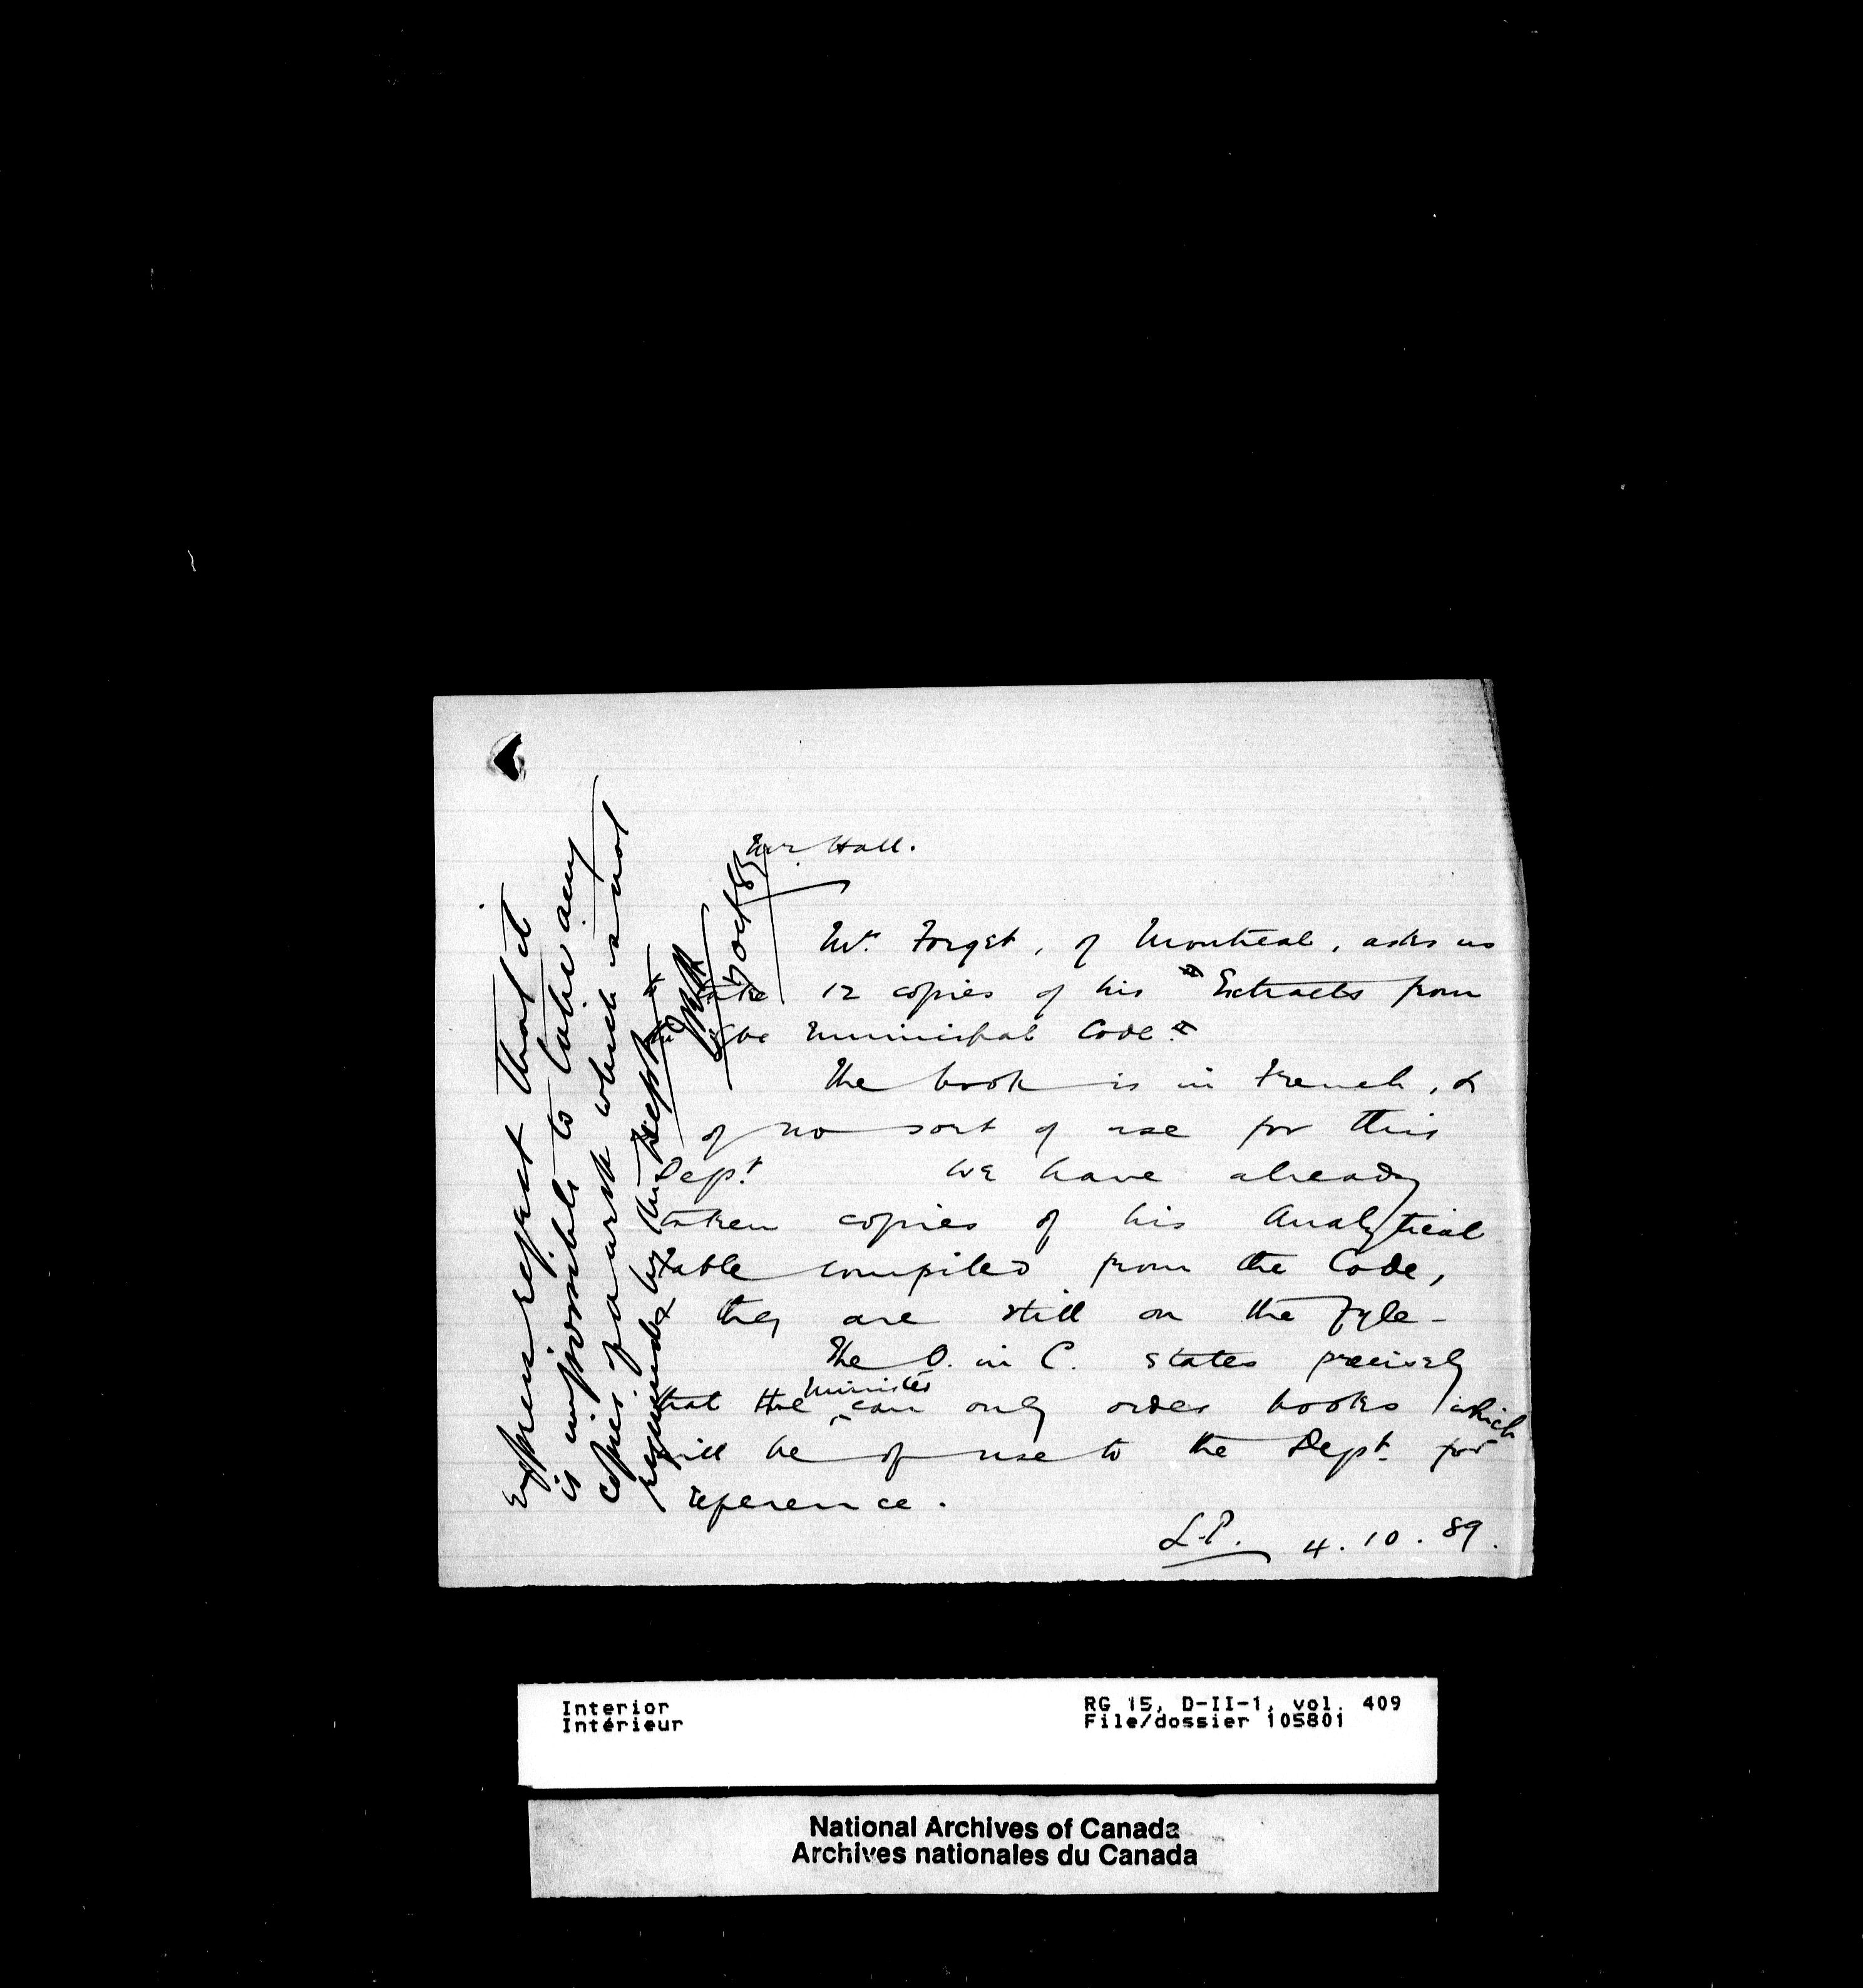 Mr. Hall.
Mr. Forget, of Montreal, asks us
to take 12 copies of his "Extracts from
the Municipal Code."
The book is in French, &
of no sort of use for this
Dept. We have already
taken copies of his Analytical
Table compiled from the Code,
& they are still on the fyle-
The O. in C. states precisely
that the Minister can only order books which
will be of use to the Dept. for
reference.
L.P. 4.10.89.
Express regret that it
is impossible to take any
copies of a work which is not
required by the Dept
7 Oct 89
Interior
Intérieur
RG 15, D-II-1, vol. 409
File/dossier 105801
National Archives of Canada
Archives nationales du Canada